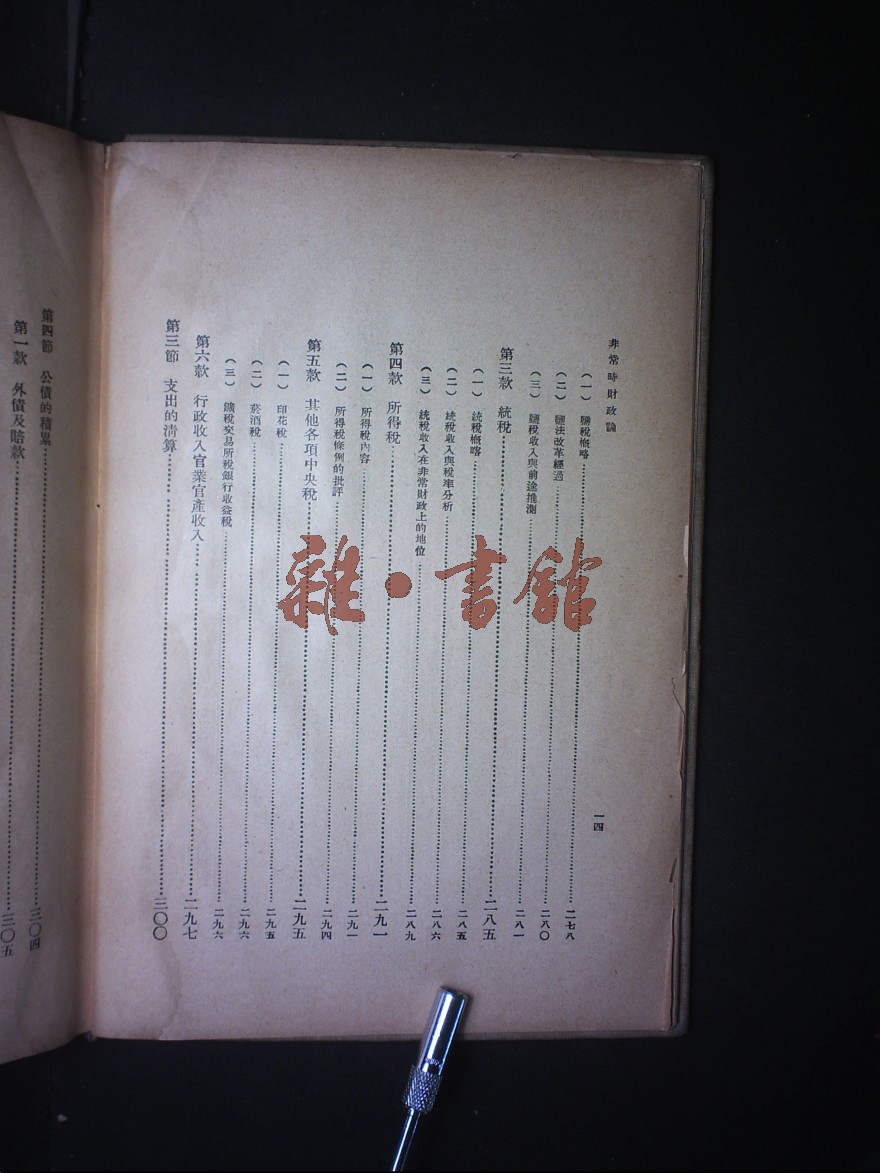 非常時財政論
一四
(一) 鹽稅概略……二七八
(二) 鹽法改革經過……二八〇
(三) 鹽稅收入與前途推測……二八一
第三款 統稅……二八五
(一) 統稅概略……二八五
(二) 統稅收入與稅率分析……二八六
(三) 統稅收入在非常財政上的地位……二八九
第四款 所得稅……二九一
(一) 所得稅內容……二九一
(二) 所得稅條例的批評……二九四
第五款 其他各項中央稅……二九五
(一) 印花稅……二九五
(二) 菸酒稅……二九六
(三) 鑛稅交易所稅銀行收益稅……二九六
第六款 行政收入官業官產收入……二九七
第三節 支出的清算……三〇〇
第四節 公債的積累……三〇四
第一款 外債及賠款……三〇五
雜·書館